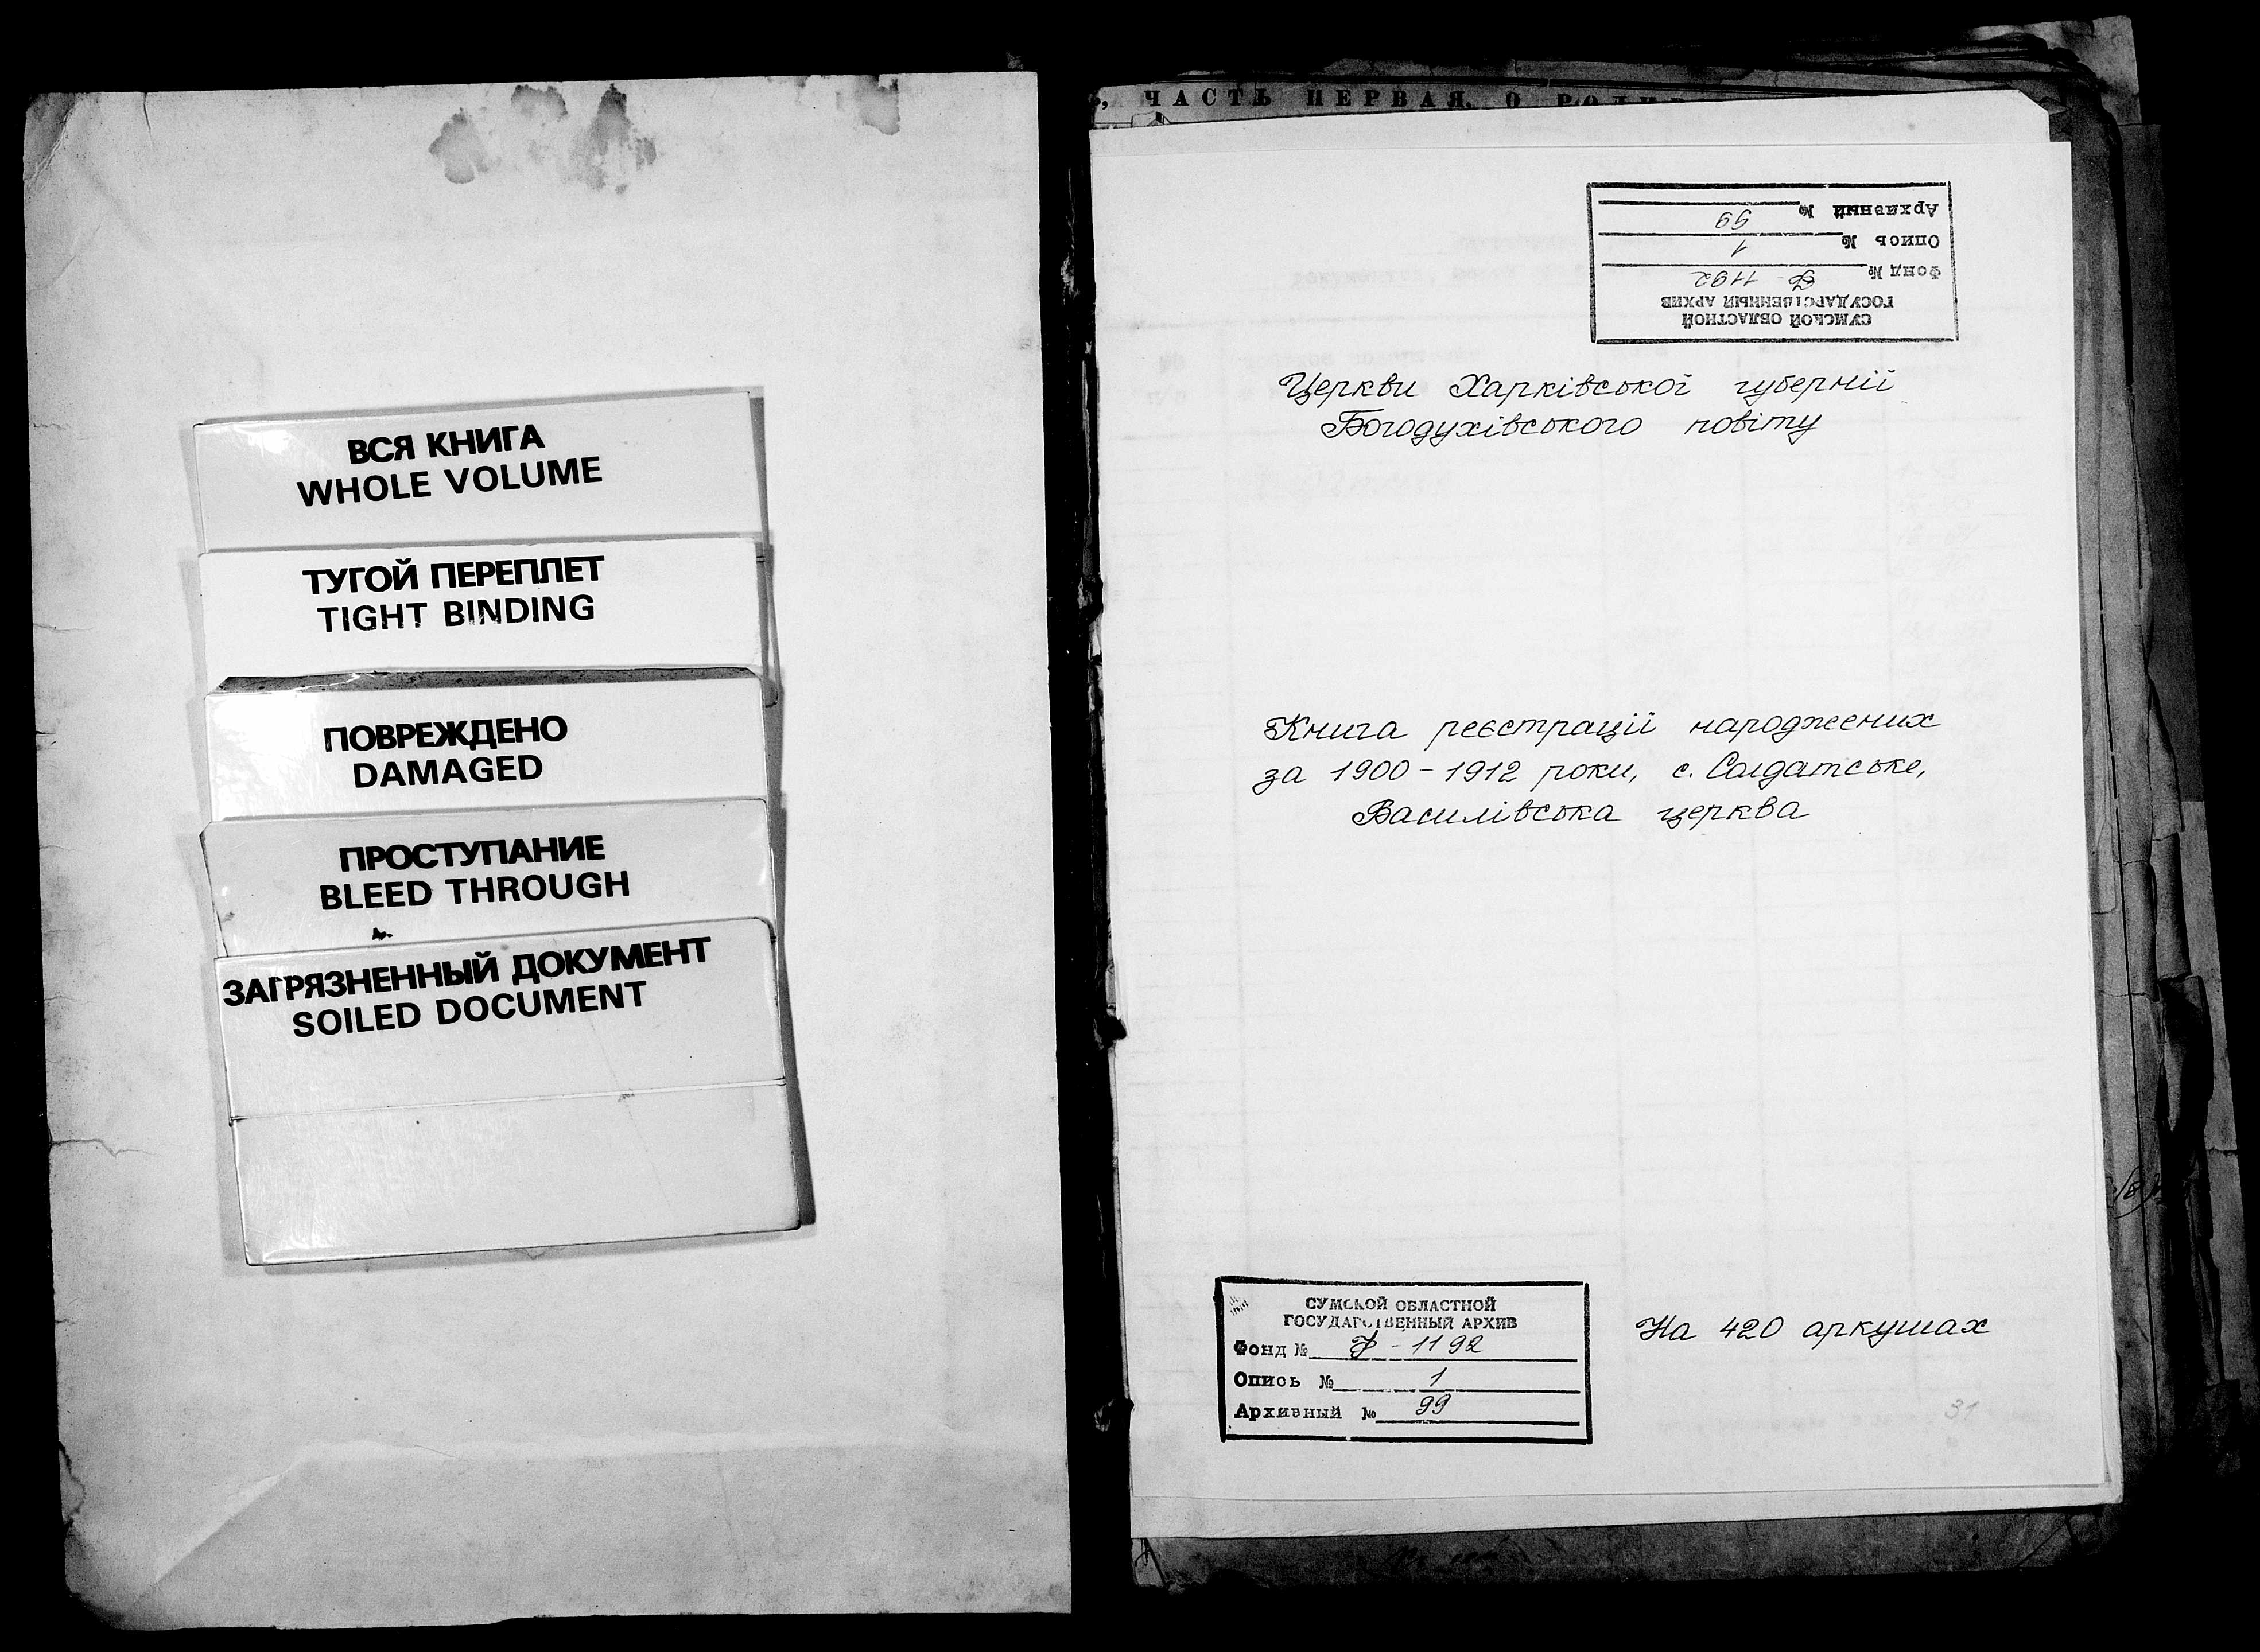 ВСЯ КНИГА
WHOLE VOLUME
ТУГОЙ ПЕРЕПЛЕТ
TIGHT BINDING
ПОВРЕЖДЕНО
DAMAGED
ПРОСТУПАНИЕ
BLEED THROUGH
ЗАГРЯЗНЕННЫЙ ДОКУМЕНТ
SOILED DOCUMENT
ЧАСТЬ ПЕРВАЯ, О
СУМСКОЙ ОБЛАСТНОЙ
ГОСУДАРСТВЕННЫЙ АРХИВ
Фонд № Ф-1192
Опись № 1
Архивный № 99
Церкви Харківської губернії
Богодухівського повіту
Книга реєстрації народжених
за 1900-1912 роки, с. Солдатське,
Василівська церква
СУМСКОЙ ОБЛАСТНОЙ
ГОСУДАРСТВЕННЫЙ АРХИВ
Фонд № Ф-1192
Опись № 1
Архивный № 99
На 420 аркушах
31